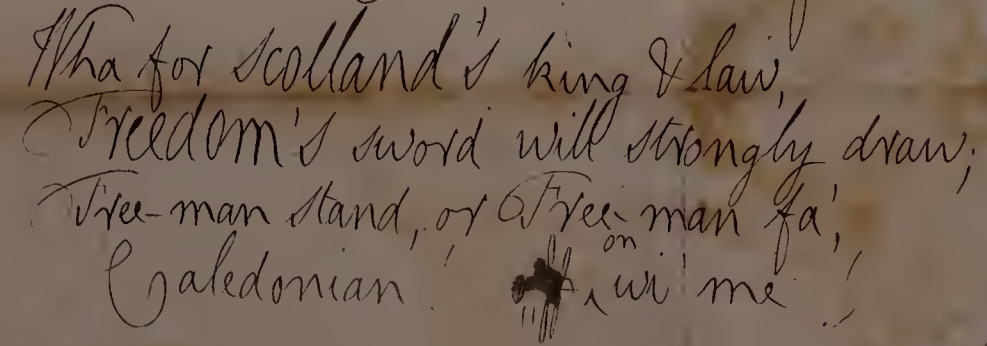 Wha for Scotland's king & law,
Freedom's sword will strongly draw;
Free-man stand, or Free-man fa',
Caledonian! on wi' me!